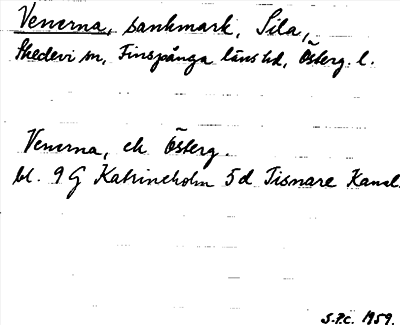 Venerna, sankmark, Sila,
Skedevi sn, Finspånga läns hd, Österg. l.
Venerna, ek Österg.
bl. 9 G Katrineholm 5d Tisnare Kanal.
S.P.C. 1959.